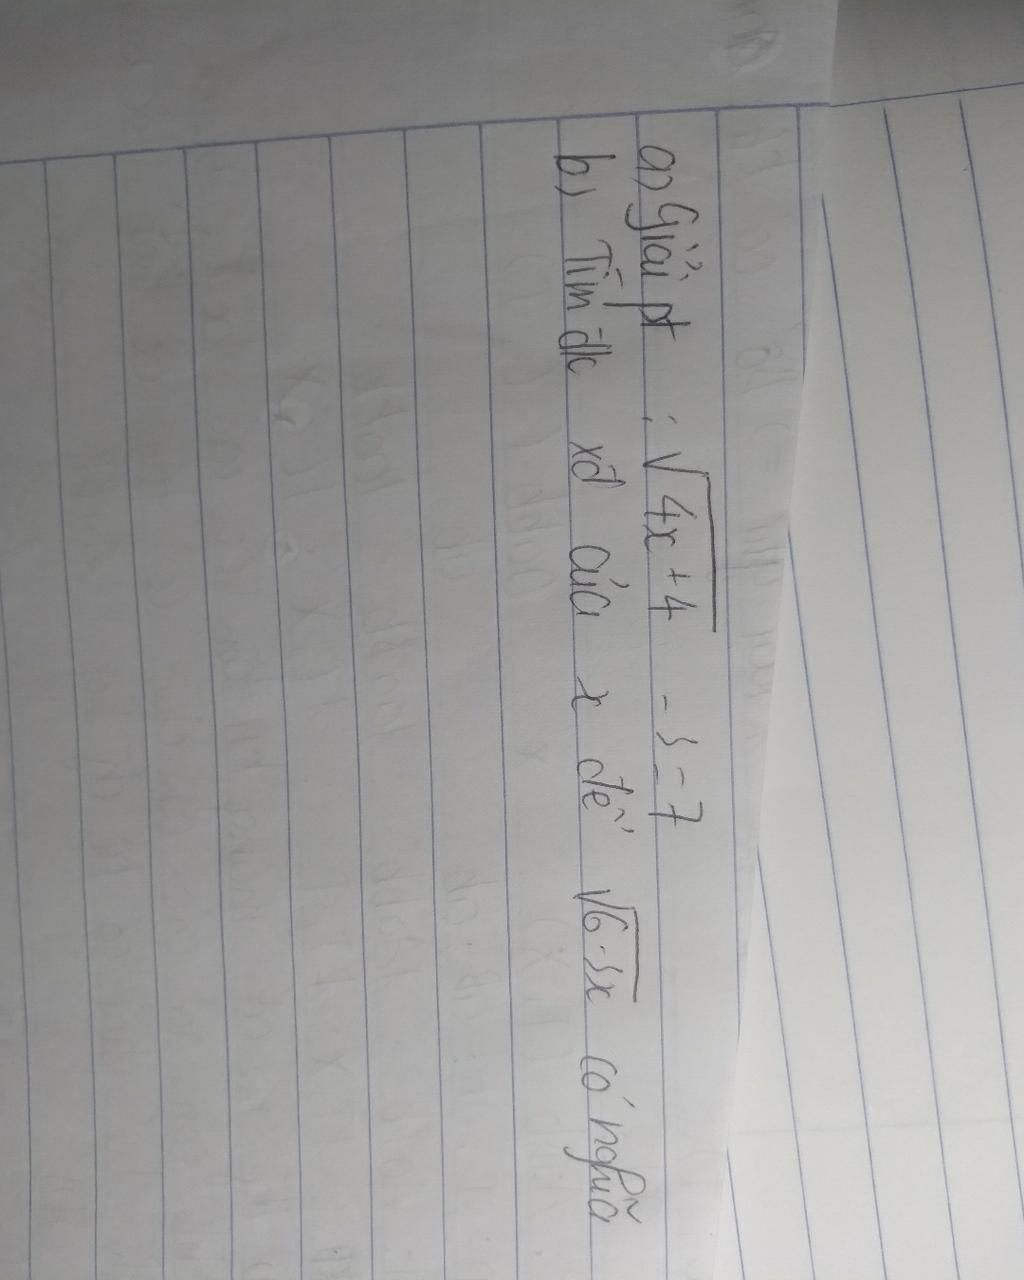 a) Giải pt : √4x+4 - 3 = 7
b) Tìm đk xđ của x để √6-3x có nghĩa